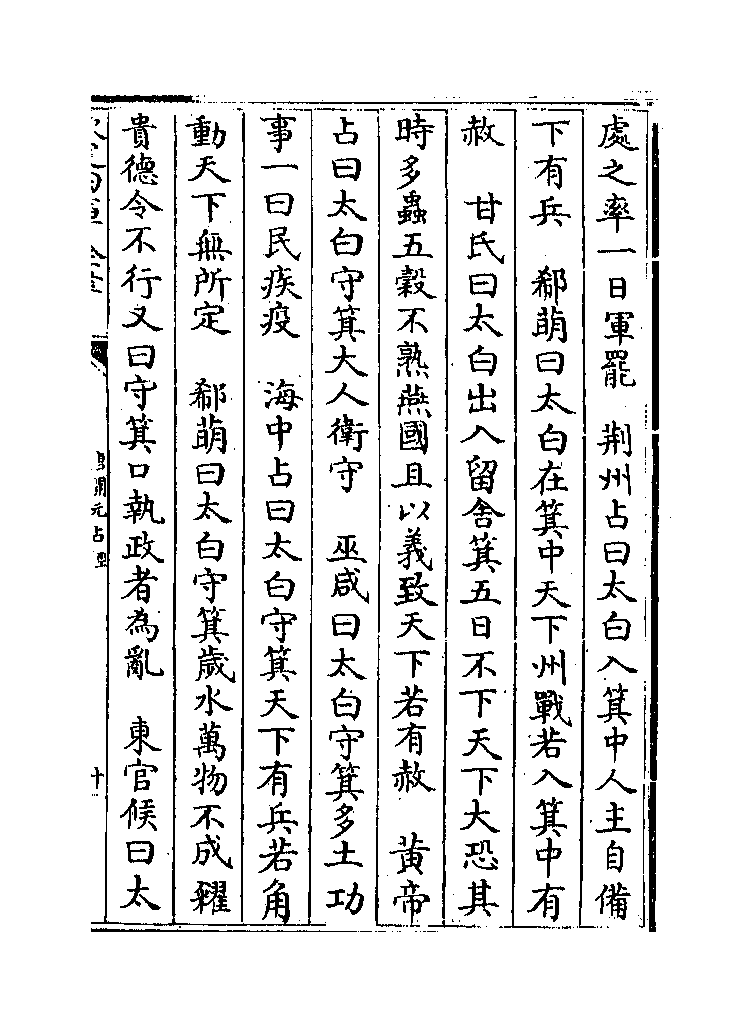 處之率一日軍罷　荆州占曰太白入箕中人主自備
下有兵　郗萌曰太白在箕中天下州戰若入箕中有
赦　甘氏曰太白出入留舍箕五日不下天下大恐其
時多蟲五穀不熟燕國且以義致天下若有赦　黃帝
占曰太白守箕大人衛守　巫咸曰太白守箕多土功
事一曰民疾疫　海中占曰太白守箕天下有兵若角
動天下無所定　郗萌曰太白守箕歲水萬物不成糴
貴德令不行又曰守箕口執政者為亂　東官候曰太
唐開元占經
十